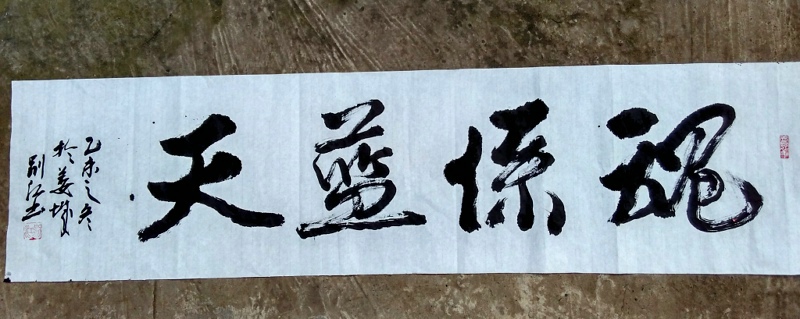 魂係蓝天
乙未之冬
於姜城
别江书